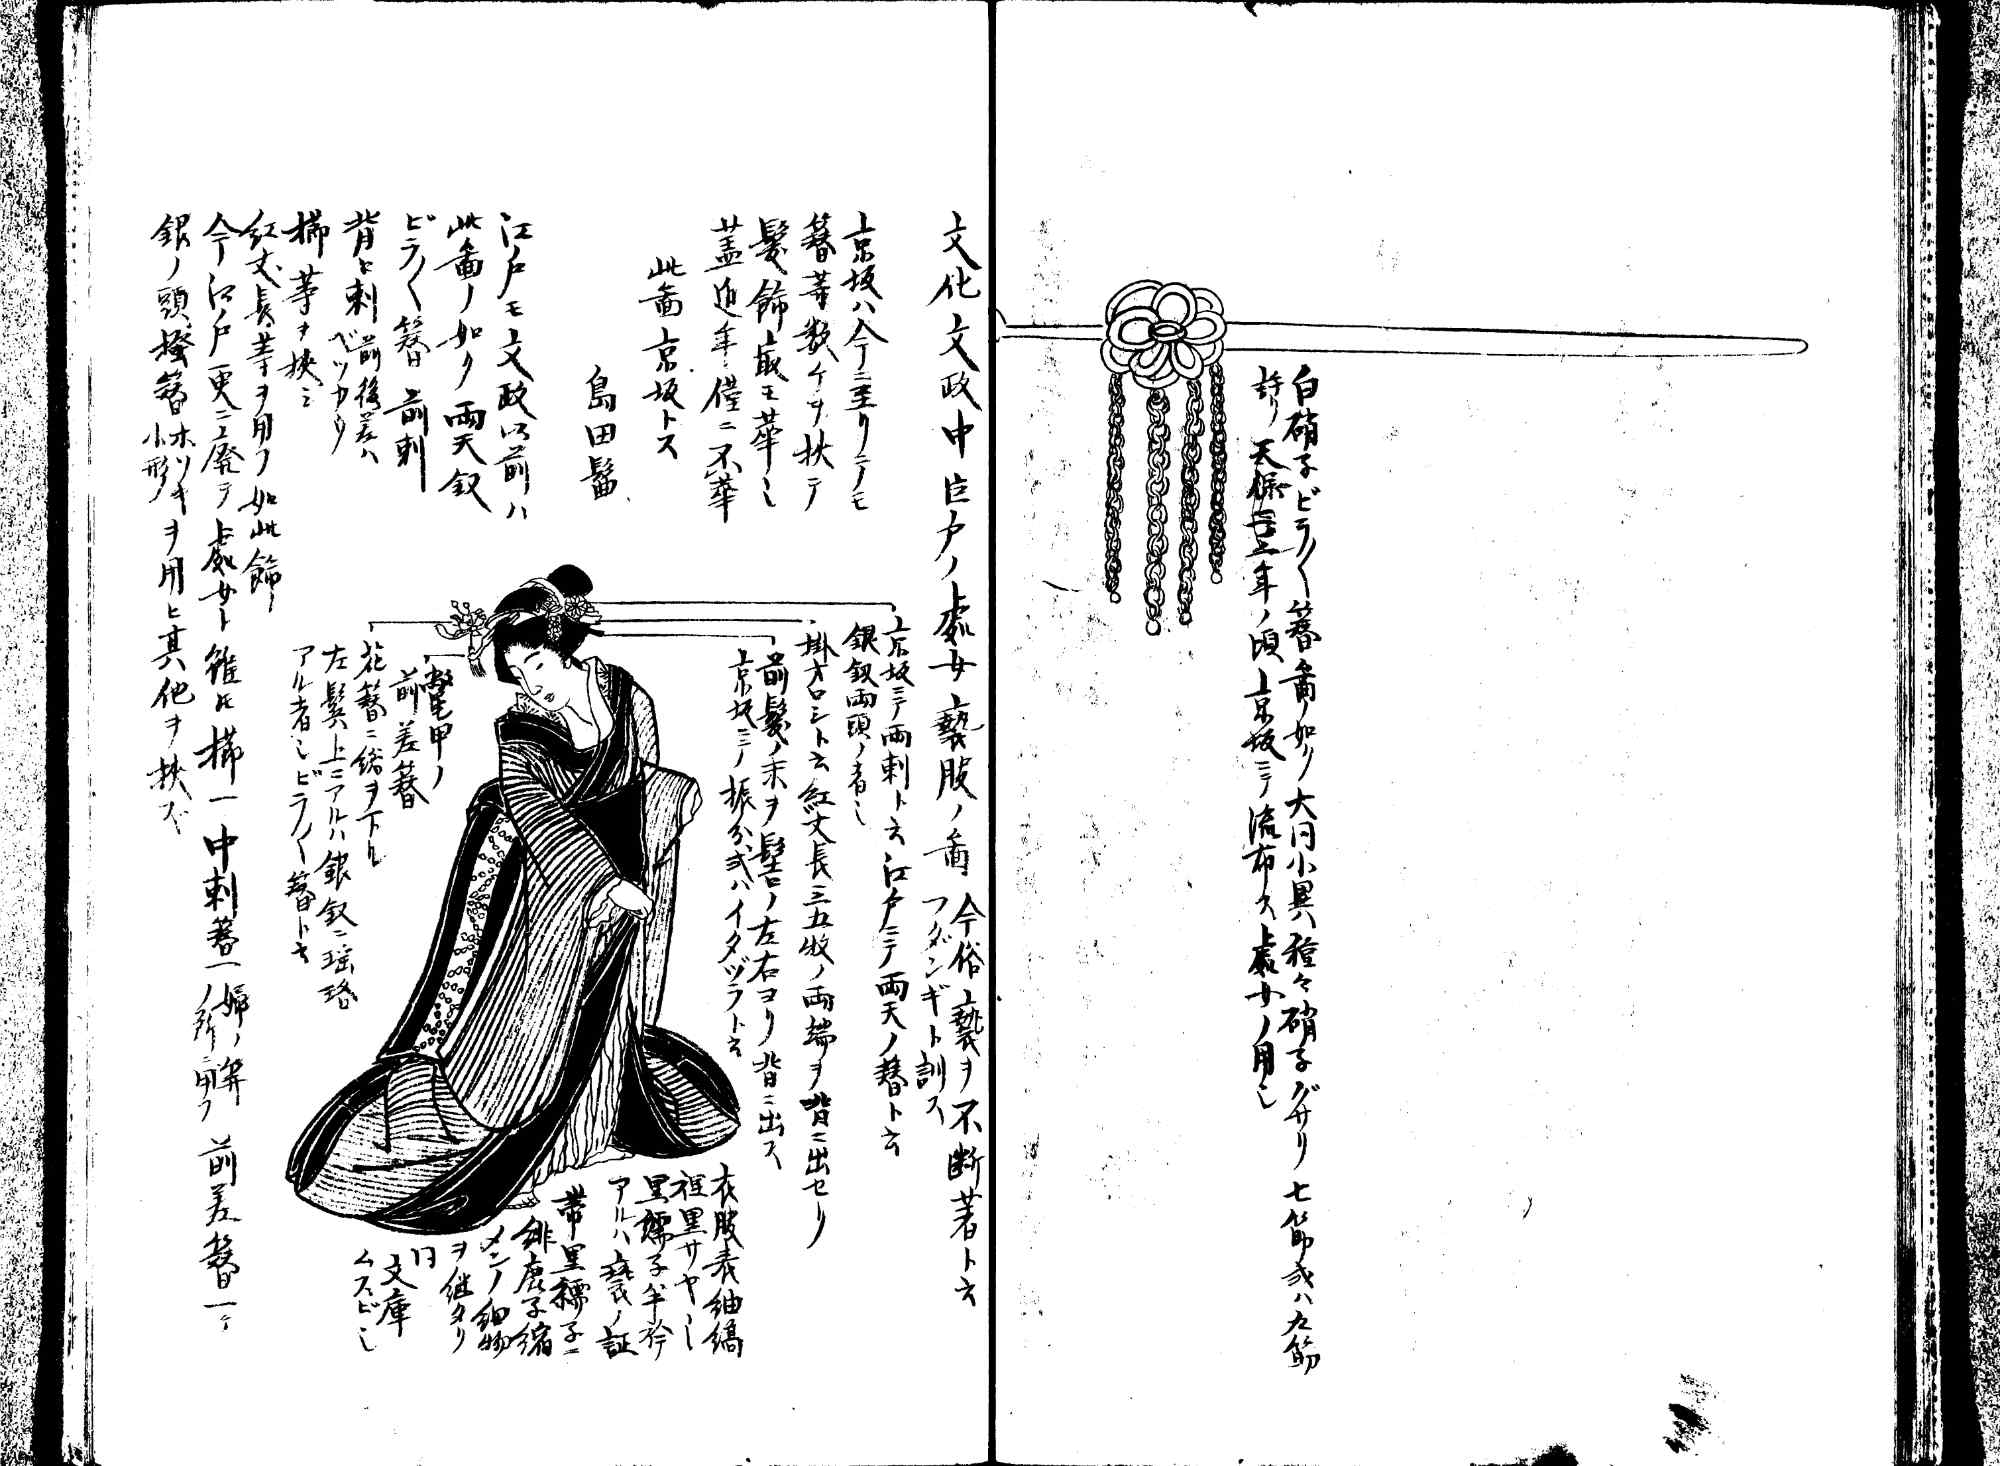 白硝子ビラ〱簪圖ノ如リ大同小異ハ種々硝子グサリ七筋或ハ九筋
許リ天保二三年ノ頃京坂ニテ流布ス處女ノ用也
文化文政中巨戸ノ處女褻服ノ圖
今俗褻ヲ不断著ト云
フダンギト訓ス
京坂ハ今ニ至リテモ
簪等数ケヲ挟テ
髪飾最モ華也
蓋近年僅ニ不華
此圖京坂トス
島田髷
江戸モ文政以前ハ
此圖ノ如ク両天釵
ビラ〱簪前刺
背ヒ刺前後差ハ
ベツカウ
櫛等ヲ挟ミ
紅丈長等ヲ用フ如此飾リ
今ハ江戸更ニ廃テ處女ト雖ドモ櫛一中刺簪一婦ノ笄ノ所ニ用フ前差簪一ニ
銀ノ頭掻簪ホツキ小形ノヲ用ヒ其他ヲ挟ズ
京坂ニテ両刺ト云江戸ニテ両天ノ簪ト云
銀釵両頭ノ者也
掛オロシト云紅丈長三五枚ノ両端ヲ背ニ出セリ
前髪ノ末ヲ髻ノ左右ヨリ背ニ出ス
京坂ニノ振分或ハイタヅラト云
鼈甲ノ
前差簪
花簪ニ総ヲ下ル
左鬢上ニアルハ銀釵ニ瑶珞
アル者也ビラ〱簪ト云
衣服表紬縞
裡黒サヤ也
黒繻子半衿
アルハ褻ノ証
帯黒繻子ニ
緋鹿子縮
メンノ細物
ヲ継タリ
同
文庫
ムスビ也